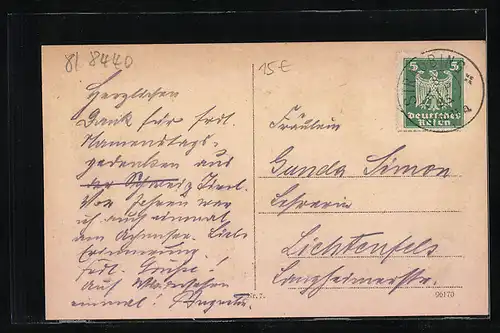 8/8440
15€
Herzlichen
Dank für frdl.
Namenstags-
gedenken aus
der Schweiz Tirol.
Vor Jahren war
ich auch einmal
am Achensee. Liebe
Erinnerung.
frdl. Grüße!
Auf Wiedersehen
einmal!
5 5
Deutsches
Reich
Fräulein
Gunda Simon
Lehrerin
Lichtenfels
Langheimerstr.
Nr. 7.
96170